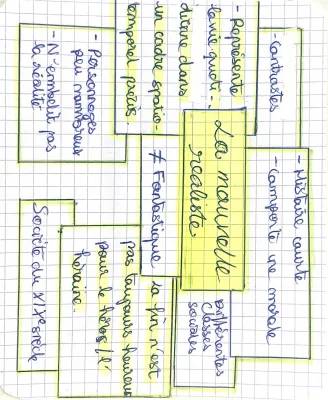 La nouvelle
réaliste.
- Contrastes
- Représente
la vie quoti-
dienne dans
un cadre spatio-
temporel précis.
- Personnages
peu nombreux
- N'embellit pas
la réalité
- Histoire courte
- Comporte une morale
≠ Fantastique
Différentes
classes
sociales
la fin n'est
pas toujours heureuse
pour le héros/l'
héroïne.
Société du XIXe siècle